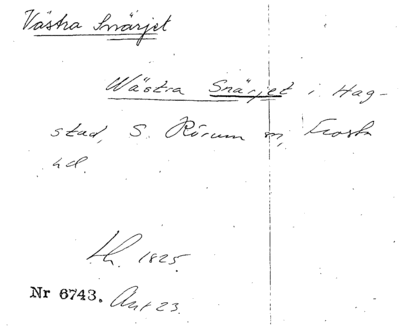 Västra Snärjet
Wästra Snärjet i Hag-
stad, S. Rörum sn, Frosta
hd.
Lh. 1825.
Nr 6743. Akt 23.